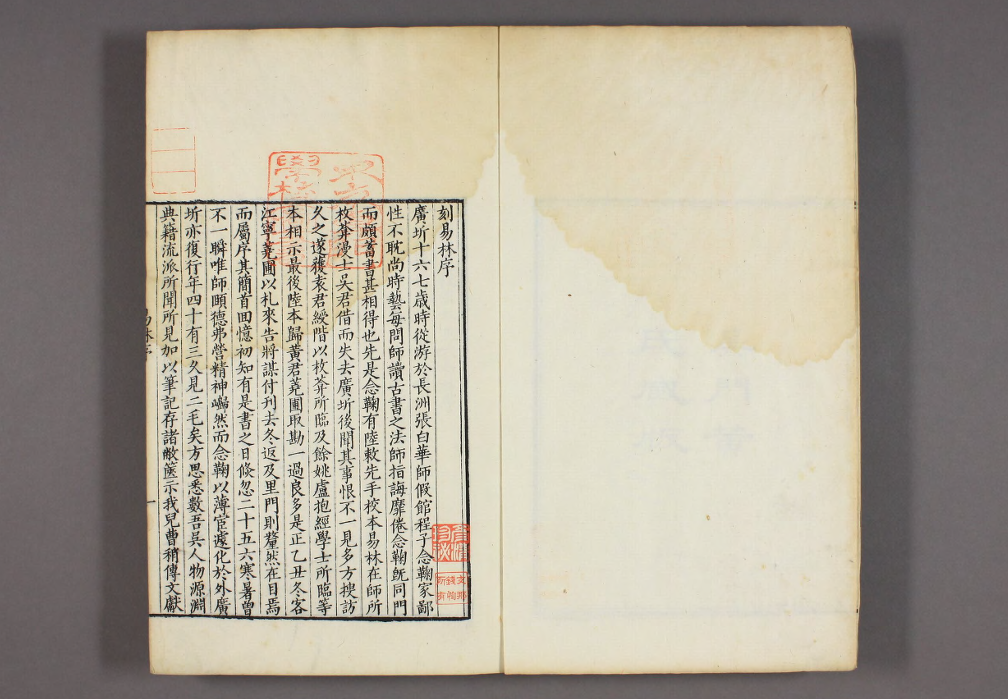 刻易林序
廣圻十六七歲時從游於長洲張白華師假館程子念鞠家鄙
性不耽尚時藝每問師讀古書之法師指誨靡倦念鞠既同門
而頗蓄書甚相得也先是念鞠有陸敕先手校本易林在師所
枚菴漫士吳君借而失去廣圻後聞其事恨不一見多方搜訪
久之遂獲袁君綬階以枚菴所臨及餘姚盧抱經學士所臨等
本相示最後陸本歸黃君蕘圃取勘一過良多是正乙丑冬客
江寧蕘圃以札來告將謀付刊去冬返及里門則犛然在目焉
而屬序其簡首回憶初知有是書之日倏忽二十五六寒暑曾
不一瞬唯師頤德弗營精神巋然而念鞠以薄宦遽化於外廣
圻亦復行年四十有三久見二毛矣方思悉數吾吳人物源淵
典籍流派所聞所見加以筆記存諸敝篋示我兒曹稍傳文獻
易林序
一